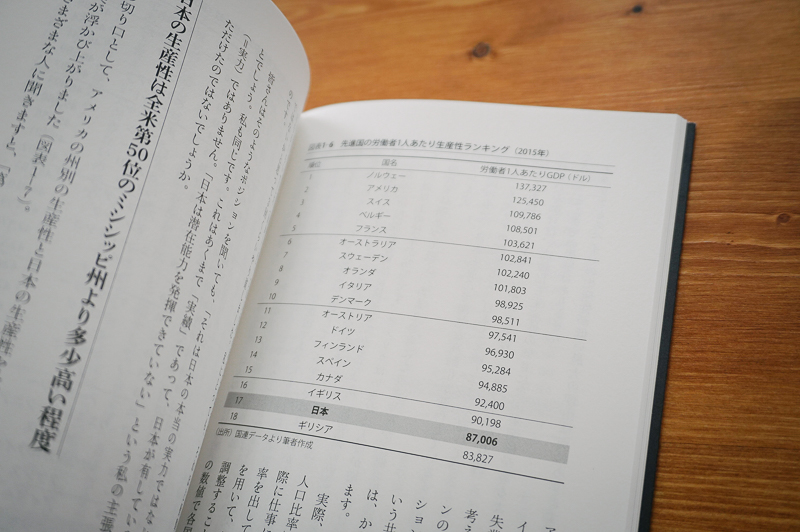 図表1-6 先進国の労働者1人あたり生産性ランキング（2015年）
順位 国名 労働者1人あたりGDP（ドル）
1 ノルウェー 137,327
2 アメリカ 125,450
3 スイス 109,786
4 ベルギー 108,501
5 フランス 103,621
6 オーストラリア 102,841
7 スウェーデン 102,240
8 オランダ 101,803
9 イタリア 98,925
10 デンマーク 98,511
11 オーストリア 97,541
12 ドイツ 96,930
13 フィンランド 95,284
14 スペイン 94,885
15 カナダ 92,400
16 イギリス 90,198
17 日本 87,006
18 ギリシア 83,827
（出所）国連データより筆者作成
ア
イ
失業
考え
ンの
ション
いう
は、か
ます。
実際、
人口比率
際に仕事
率を出して
を用いて、
調整するこ
の数値で各
皆さんはそのようなポジションを聞いても、「それは日本の本当の実力ではな
とでしょう。私も同じです。これはあくまで「実績」であって、日本が有してい
（＝実力）ではありません。「日本は潜在能力を発揮できていない」という私の主張
ただけたのではないでしょうか。
日本の生産性は全米第50位のミシシッピ州より多少高い程度
切り口として、アメリカの州別の生産性と日本の生産性を
が浮かび上がりました（図表1-7）。
まざまな人に聞きますと、